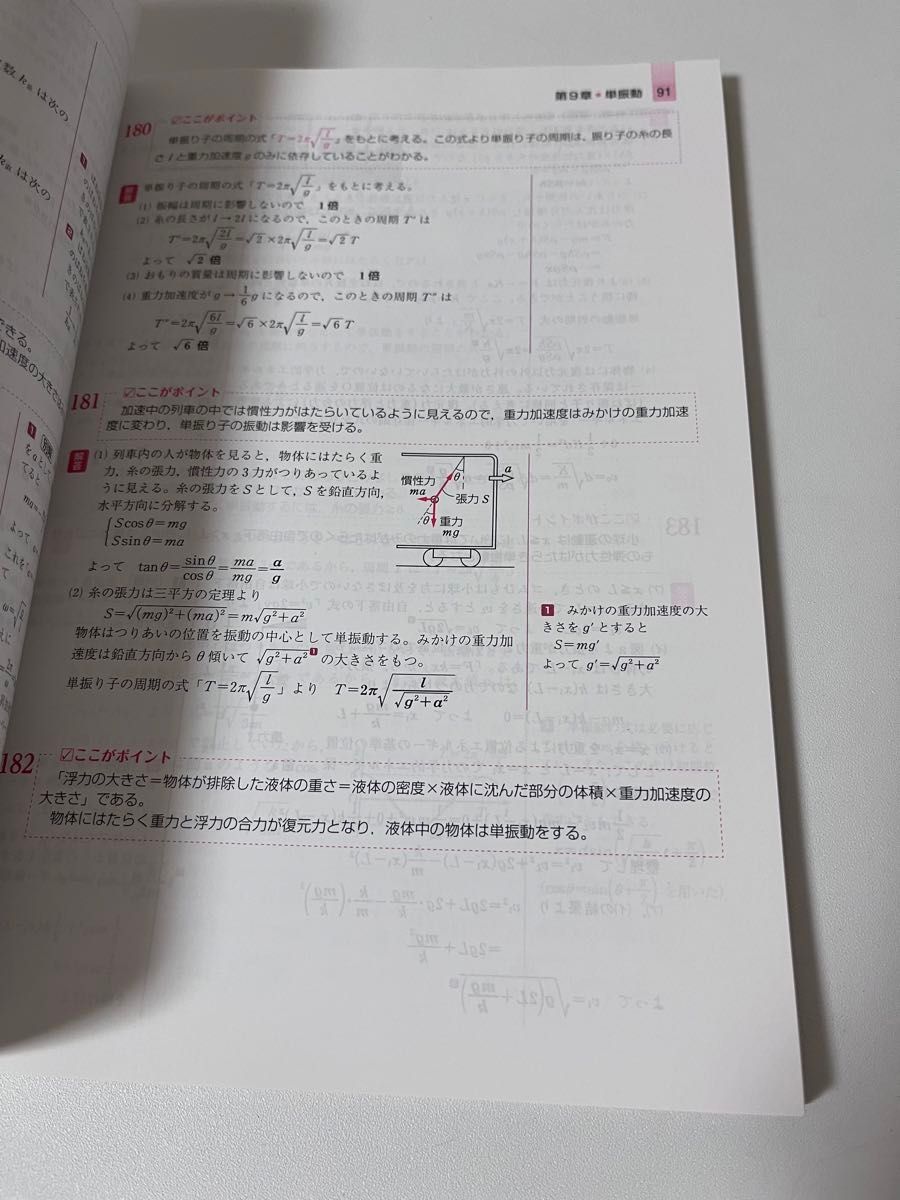 数 k並 は次の
k直 は次の
できる。
加速度の大きさ
第9章・単振動 91
180 ☑ここがポイント
単振り子の周期の式「T=2π√(l/g)」をもとに考える。この式より単振り子の周期は、振り子の糸の長
さ l と重力加速度 g のみに依存していることがわかる。
解答 単振り子の周期の式「T=2π√(l/g)」をもとに考える。
(1) 振幅は周期に影響しないので 1倍
(2) 糸の長さが l→2l になるので，このときの周期 T′ は
T′=2π√(2l/g)=√2×2π√(l/g)=√2 T
よって √2 倍
(3) おもりの質量は周期に影響しないので 1倍
(4) 重力加速度が g→1/6 g になるので，このときの周期 T″ は
T″=2π√(6l/g)=√6×2π√(l/g)=√6 T
よって √6 倍
181 ☑ここがポイント
加速中の列車の中では慣性力がはたらいているように見えるので，重力加速度はみかけの重力加速
度に変わり，単振り子の振動は影響を受ける。
解答 (1) 列車内の人が物体を見ると，物体にはたらく重
力，糸の張力，慣性力の3力がつりあっているよ
うに見える。糸の張力をSとして，Sを鉛直方向，
水平方向に分解する。
{Scosθ=mg
Ssinθ=ma
よって tanθ=sinθ/cosθ=ma/mg=a/g
慣性力
ma
θ
張力 S
θ
重力
mg
a
(2) 糸の張力は三平方の定理より
S=√((mg)²+(ma)²)=m√(g²+a²)
物体はつりあいの位置を振動の中心として単振動する。みかけの重力加
速度は鉛直方向から θ 傾いて √(g²+a²) 1 の大きさをもつ。
単振り子の周期の式「T=2π√(l/g)」より T=2π√(l/√(g²+a²))
1 みかけの重力加速度の大
きさを g′ とすると
S=mg′
よって g′=√(g²+a²)
182 ☑ここがポイント
「浮力の大きさ=物体が排除した液体の重さ=液体の密度×液体に沈んだ部分の体積×重力加速度の
大きさ」である。
物体にはたらく重力と浮力の合力が復元力となり，液体中の物体は単振動をする。